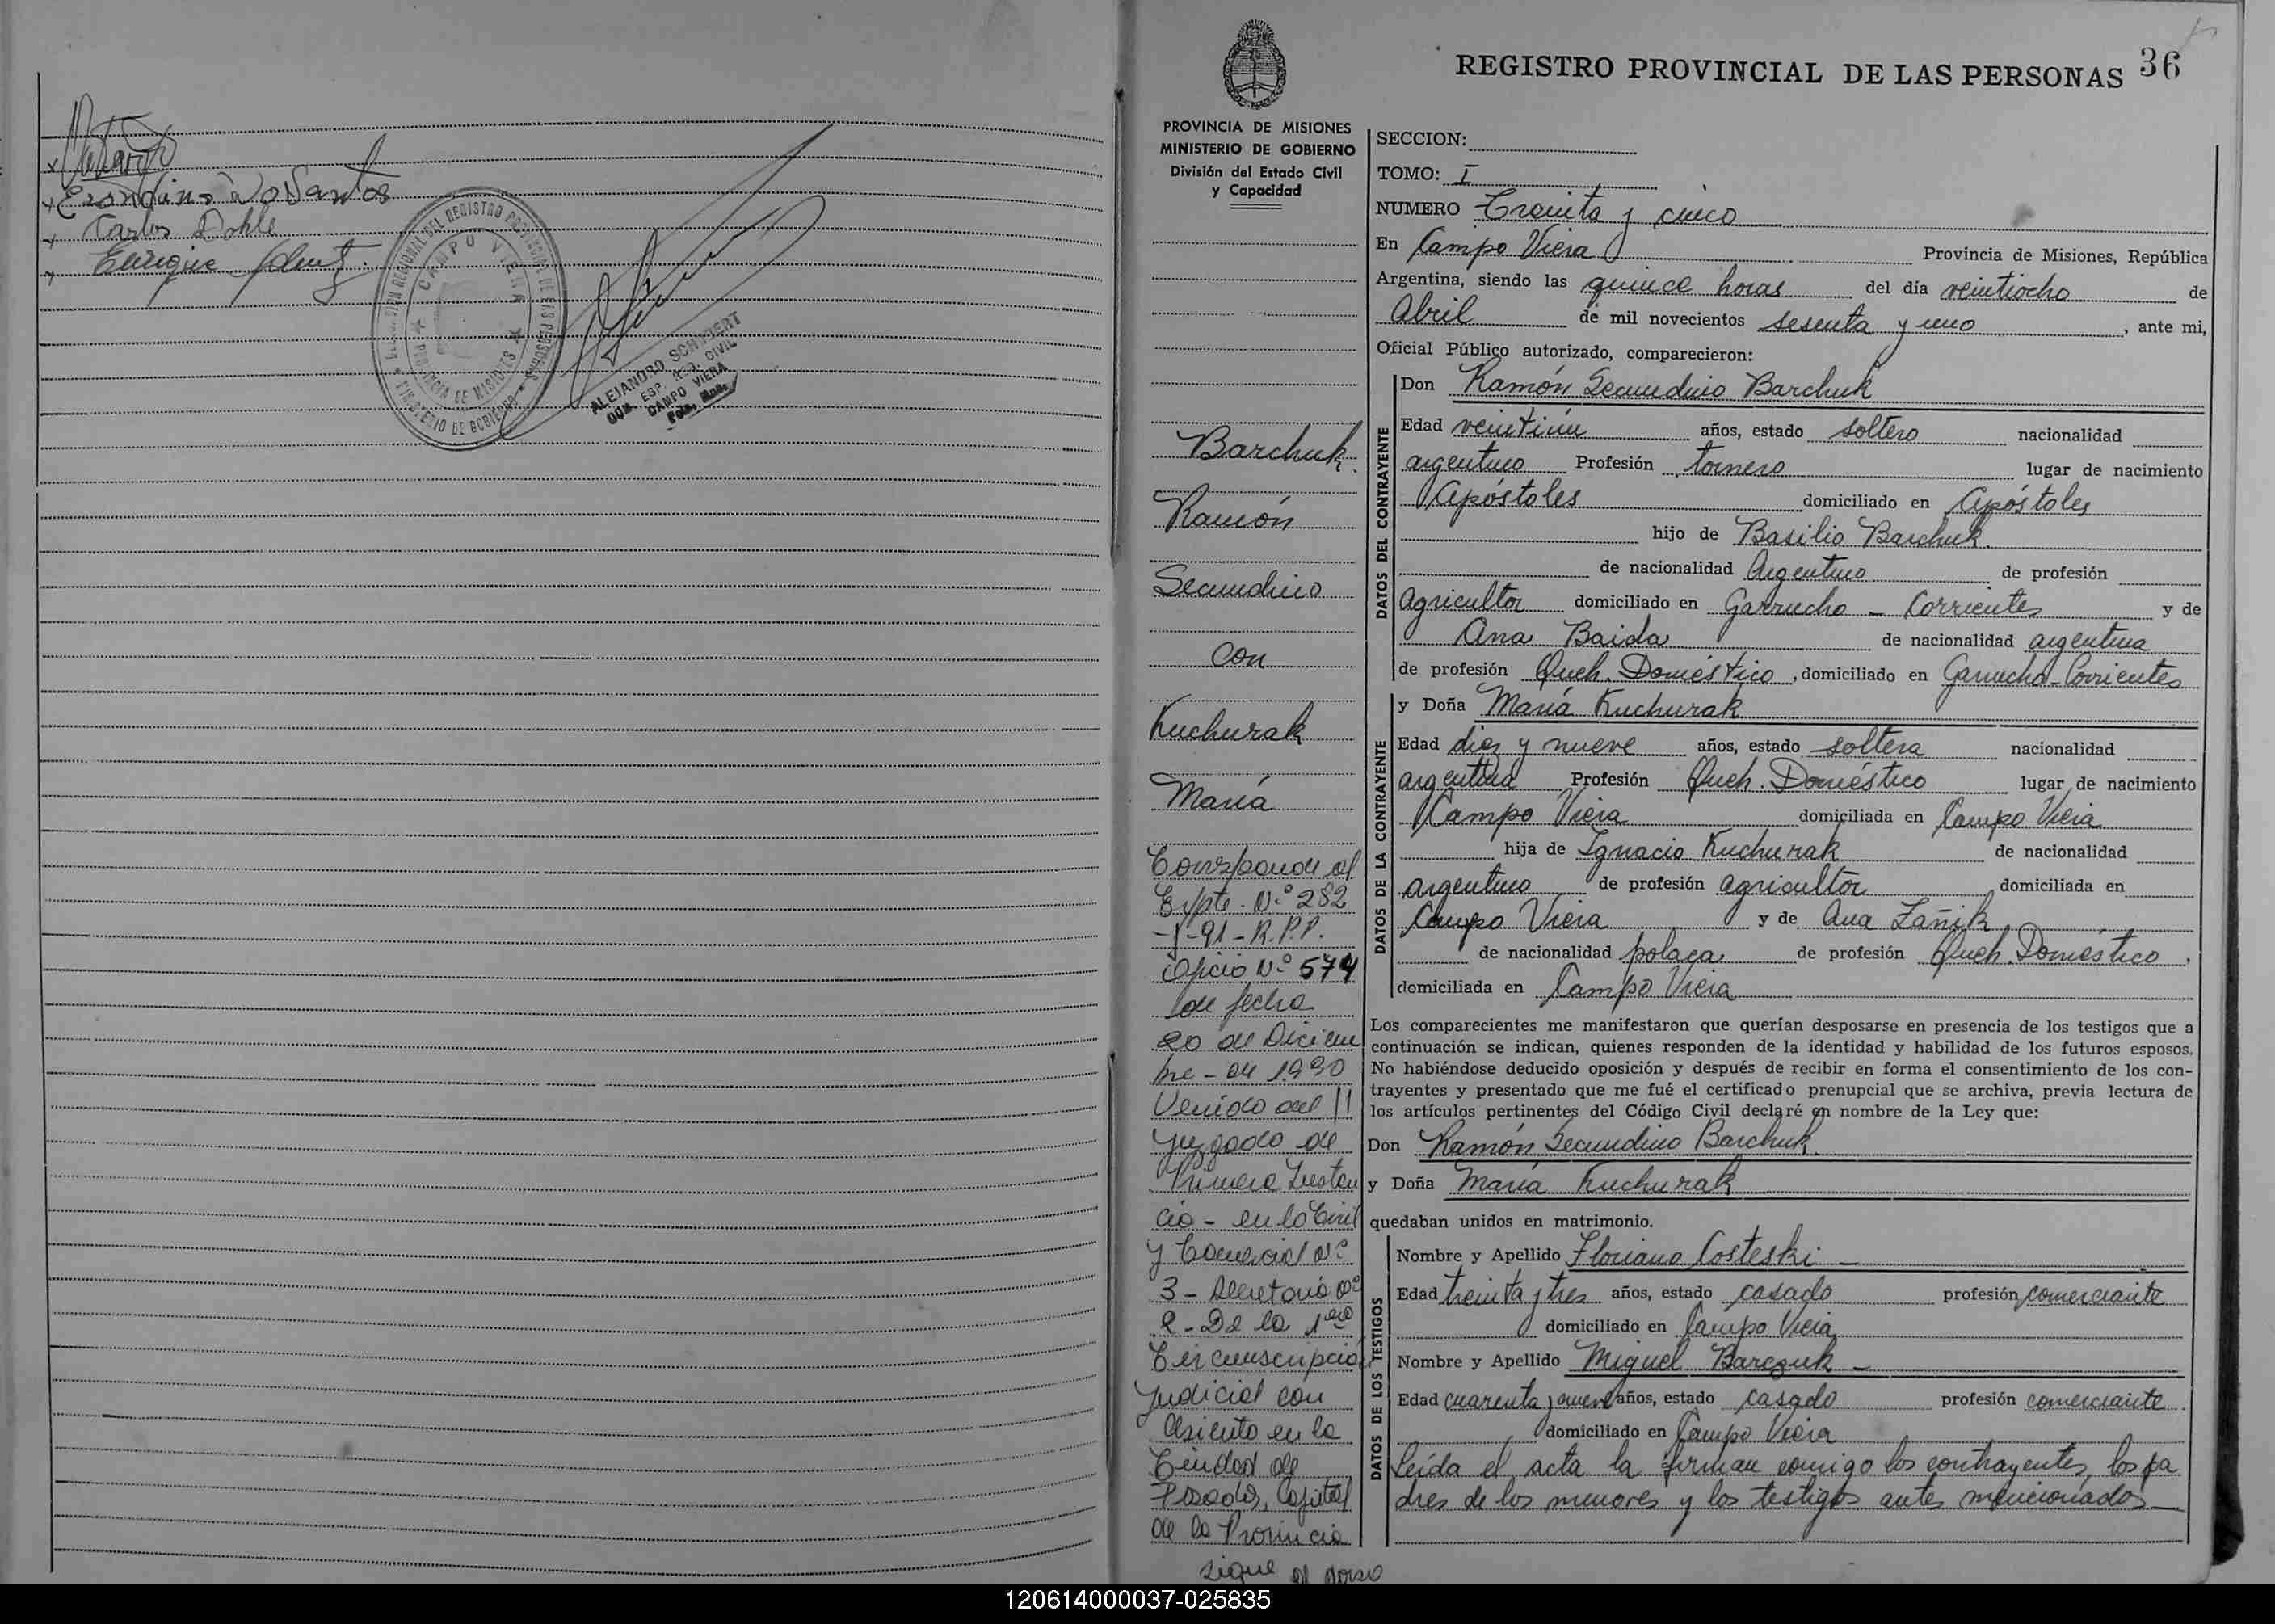 x
x Erondino Do Santos
x Carlos Dohle
x Enrique
DEL REGISTRO PROVINCIAL DE LAS PERSONAS
CAMPO VIERA
PROVINCIA DE MISIONES
MINISTERIO DE GOBIERNO
ALEJANDRO SCHUBERT
CAMPO VIERA
36
REGISTRO PROVINCIAL DE LAS PERSONAS
PROVINCIA DE MISIONES
MINISTERIO DE GOBIERNO
División del Estado Civil
y Capacidad
Barchuk
Ramón
Secundino
con
Kuchurak
María
Corresponde al
Expte. N.º 282
-J-91-R.P.P.
Oficio N.º 574
de fecha
20 de Diciem
bre - de 1990
Venido del
Juzgado de
Primera Instan
cia - en lo Civil
y Comercial Nº
3 - Secretaria Nº
2 - De la 1era
Circunscripción
Judicial con
Asiento en la
Ciudad de
Posadas, Capital
de la Provincia
sigue al dorso
SECCION:
TOMO: I
NUMERO Treinta y cinco
En Campo Viera Provincia de Misiones, República
Argentina, siendo las quince horas del día veintiocho de
Abril de mil novecientos sesenta y uno, ante mi,
Oficial Público autorizado, comparecieron:
DATOS DEL CONTRAYENTE
Don Ramón Secundino Barchuk
Edad veintiún años, estado soltero nacionalidad
argentino Profesión tornero lugar de nacimiento
Apóstoles domiciliado en Apóstoles
hijo de Basilio Barchuk
de nacionalidad Argentino de profesión
agricultor domiciliado en Garrucho - Corrientes y de
Ana Baida de nacionalidad argentina
de profesión Queh. Doméstico, domiciliado en Garrucho - Corrientes
DATOS DE LA CONTRAYENTE
y Doña María Kuchurak
Edad diez y nueve años, estado soltera nacionalidad
argentina Profesión Queh. Doméstico lugar de nacimiento
Campo Viera domiciliada en Campo Viera
hija de Ignacio Kuchurak de nacionalidad
argentino de profesión agricultor domiciliada en
Campo Viera y de Ana Zañik
de nacionalidad polaca de profesión Queh. Doméstico,
domiciliada en Campo Viera
Los comparecientes me manifestaron que querían desposarse en presencia de los testigos que a
continuación se indican, quienes responden de la identidad y habilidad de los futuros esposos.
No habiéndose deducido oposición y después de recibir en forma el consentimiento de los con-
trayentes y presentado que me fué el certificado prenupcial que se archiva, previa lectura de
los artículos pertinentes del Código Civil declaré en nombre de la Ley que:
Don Ramón Secundino Barchuk
y Doña María Kuchurak
quedaban unidos en matrimonio.
DATOS DE LOS TESTIGOS
Nombre y Apellido Floriano Costeski -
Edad treinta y tres años, estado casado profesión comerciante
domiciliado en Campo Viera
Nombre y Apellido Miguel Barczuk -
Edad cuarenta y nueve años, estado casado profesión comerciante
domiciliado en Campo Viera
Leída el acta la firman comigo los contrayentes, los pa
dres de los menores y los testigos antes mencionados
120614000037-025835